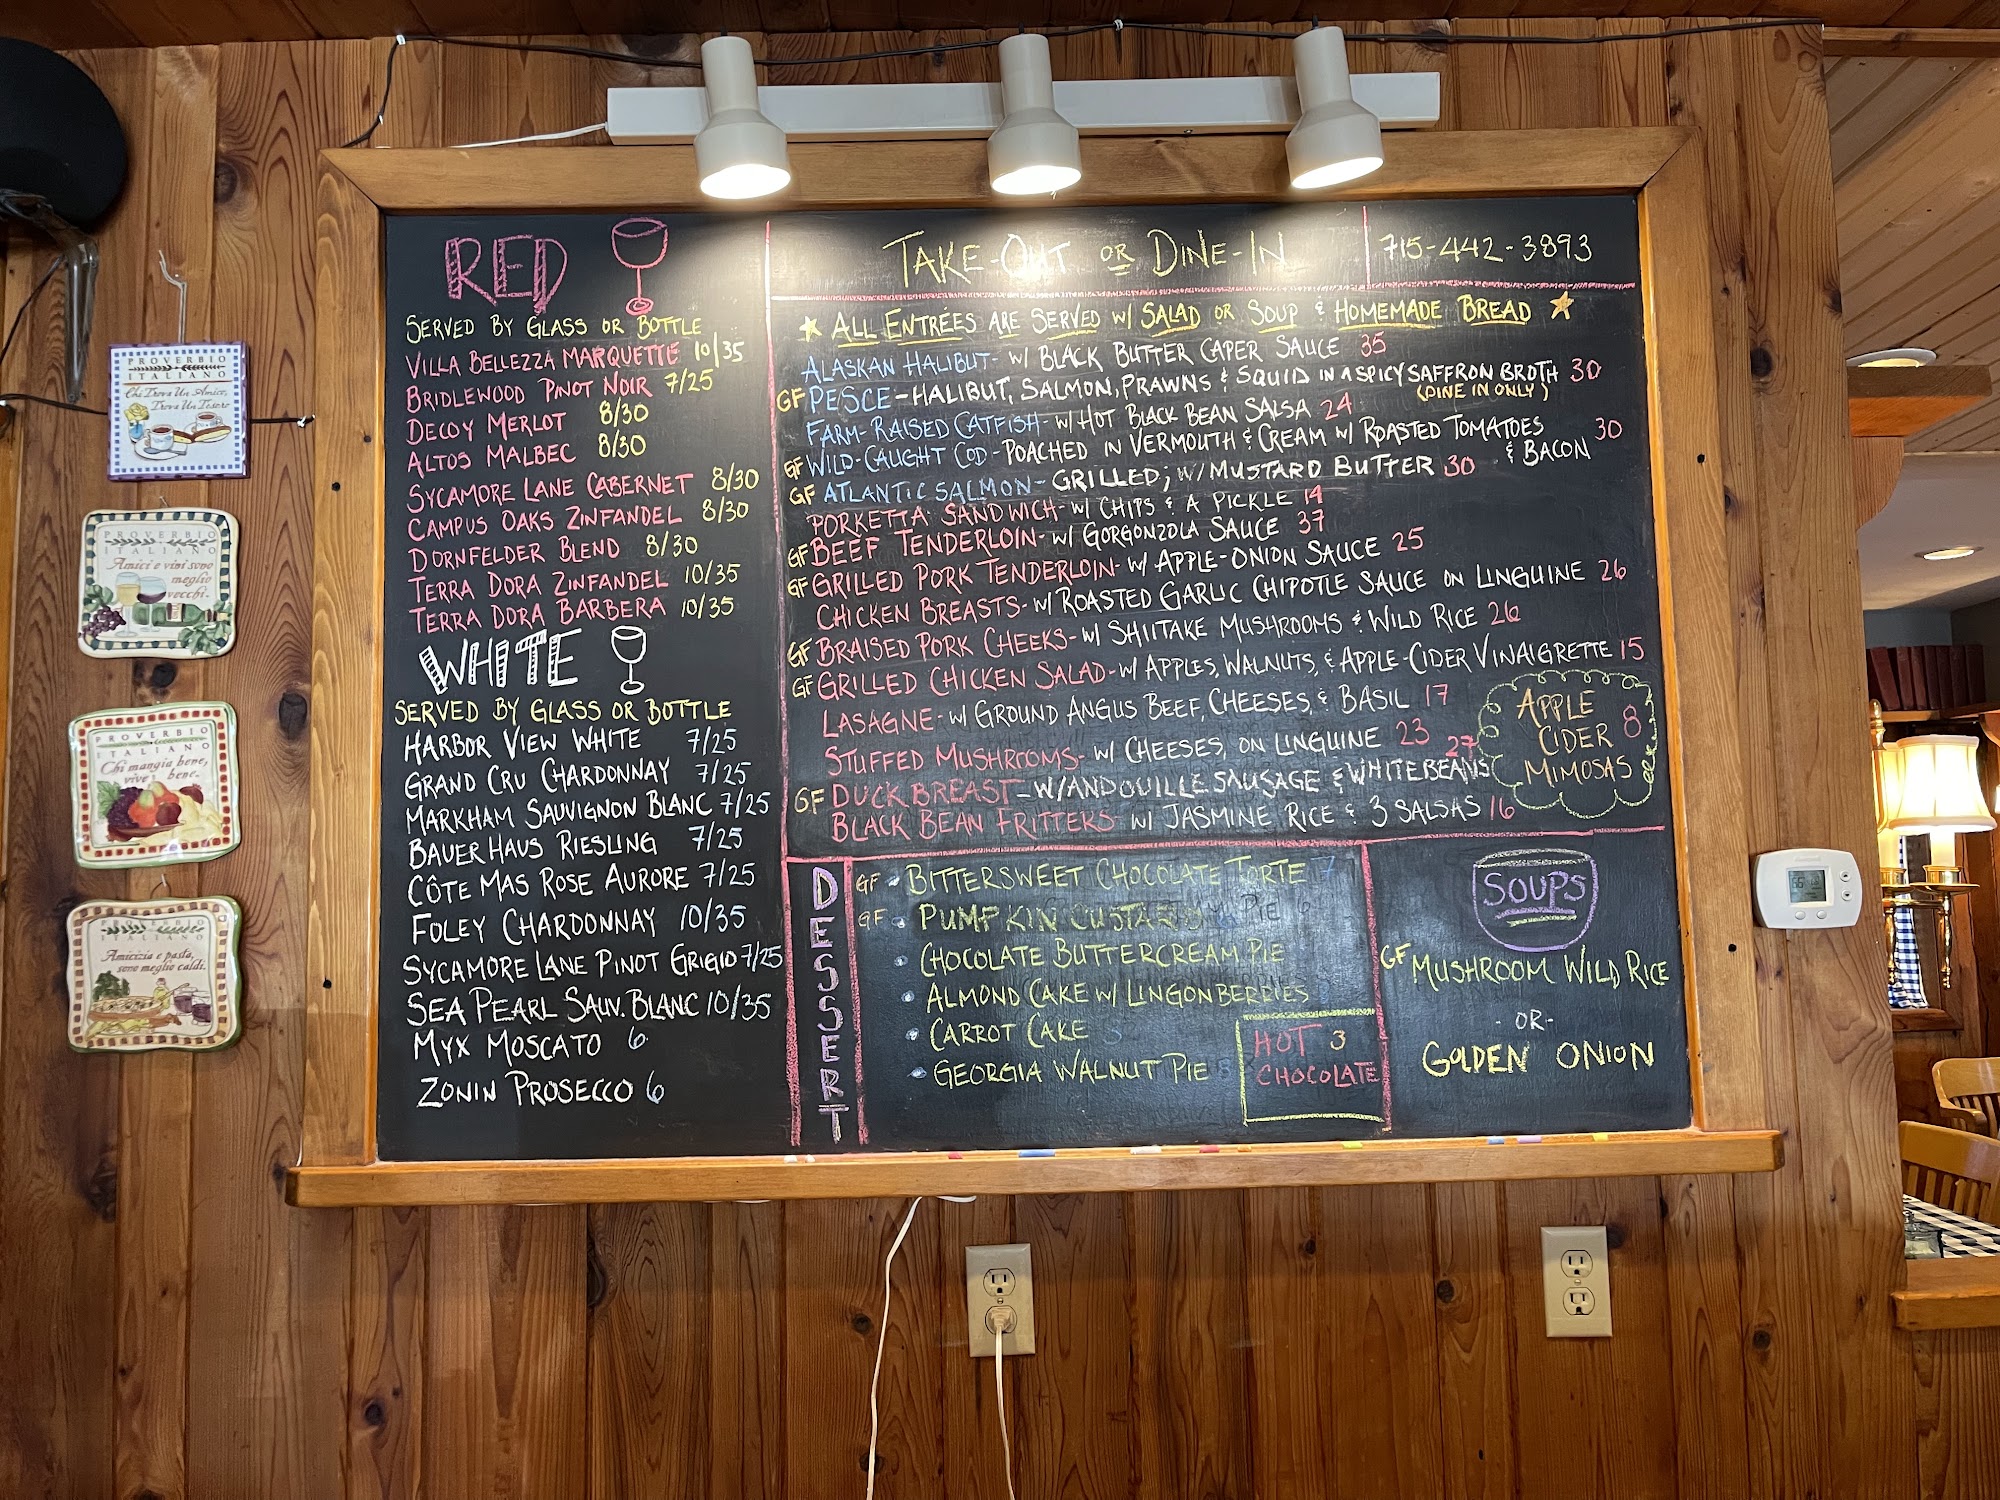 RED
SERVED BY GLASS OR BOTTLE
VILLA BELLEZZA MARQUETTE 10/35
BRIDLEWOOD PINOT NOIR 7/25
DECOY MERLOT 8/30
ALTOS MALBEC 8/30
SYCAMORE LANE CABERNET 8/30
CAMPUS OAKS ZINFANDEL 8/30
DORNFELDER BLEND 8/30
TERRA DORA ZINFANDEL 10/35
TERRA DORA BARBERA 10/35
WHITE
SERVED BY GLASS OR BOTTLE
HARBOR VIEW WHITE 7/25
GRAND CRU CHARDONNAY 7/25
MARKHAM SAUVIGNON BLANC 7/25
BAUER HAUS RIESLING 7/25
CÔTE MAS ROSE AURORE 7/25
FOLEY CHARDONNAY 10/35
SYCAMORE LANE PINOT GRIGIO 7/25
SEA PEARL SAUV. BLANC 10/35
MYX MOSCATO 6
ZONIN PROSECCO 6
TAKE-OUT OR DINE-IN
715-442-3893
ALL ENTRÉES ARE SERVED W/ SALAD OR SOUP & HOMEMADE BREAD
ALASKAN HALIBUT- W/ BLACK BUTTER CAPER SAUCE 35
GF PESCE - HALIBUT, SALMON, PRAWNS & SQUID IN A SPICY SAFFRON BROTH 30
(DINE IN ONLY)
FARM-RAISED CATFISH - W/ HOT BLACK BEAN SALSA 24
GF WILD-CAUGHT COD - POACHED IN VERMOUTH & CREAM W/ ROASTED TOMATOES
& BACON 30
GF ATLANTIC SALMON - GRILLED; W/ MUSTARD BUTTER 30
PORKETTA SANDWICH - W/ CHIPS & A PICKLE 14
GF BEEF TENDERLOIN - W/ GORGONZOLA SAUCE 37
GF GRILLED PORK TENDERLOIN - W/ APPLE-ONION SAUCE 25
CHICKEN BREASTS - W/ ROASTED GARLIC CHIPOTLE SAUCE ON LINGUINE 26
GF BRAISED PORK CHEEKS - W/ SHIITAKE MUSHROOMS & WILD RICE 26
GF GRILLED CHICKEN SALAD - W/ APPLES, WALNUTS, & APPLE-CIDER VINAIGRETTE 15
LASAGNE - W/ GROUND ANGUS BEEF, CHEESES, & BASIL 17
STUFFED MUSHROOMS - W/ CHEESES, ON LINGUINE 23
GF DUCK BREAST - W/ ANDOUILLE SAUSAGE & WHITE BEANS 27
BLACK BEAN FRITTERS - W/ JASMINE RICE & 3 SALSAS 16
APPLE
CIDER 8
MIMOSAS
DESSERT
GF BITTERSWEET CHOCOLATE TORTE 7
GF PUMPKIN CUSTARD
CHOCOLATE BUTTERCREAM PIE
ALMOND CAKE W/ LINGONBERRIES
CARROT CAKE
GEORGIA WALNUT PIE 8
HOT 3
CHOCOLATE
SOUPS
GF MUSHROOM WILD RICE
- OR -
GOLDEN ONION
PROVERBIO
ITALIANO
Chi Trova Un Amico,
Trova Un Tesoro
PROVERBIO
ITALIANO
Amici e vini sono
meglio
vecchi.
PROVERBIO
ITALIANO
Chi mangia bene,
vive bene.
PROVERBIO
ITALIANO
Amicizia e pasta,
sono meglio caldi.